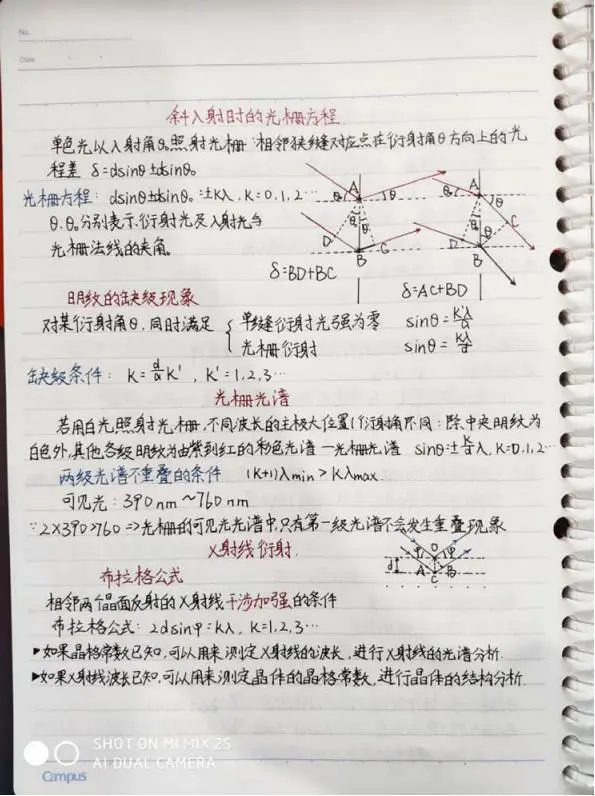 No.
Date
斜入射时的光栅方程
单色光以入射角θ₀照射光栅:相邻狭缝对应点在衍射角θ方向上的光
程差 δ=dsinθ±dsinθ₀
光栅方程: dsinθ±dsinθ₀=±kλ, k=0,1,2…
θ.θ₀分别表示衍射光及入射光与
光栅法线的夹角。
A θ₀ θ D B C
A θ₀ θ C D B
δ=BD+BC
δ=AC+BD
明纹的缺级现象
对某衍射角θ,同时满足 { 单缝衍射光强为零 sinθ=k'λ/a
光栅衍射 sinθ=kλ/d
缺级条件: k=d/a k', k'=1,2,3…
光栅光谱
若用白光照射光栅,不同波长的主极大位置(衍射角不同:除中央明纹为
白色外,其他各级明纹为由紫到红的彩色光谱—光栅光谱 sinθ=±k/d λ, k=0,1,2…
两级光谱不重叠的条件 (k+1)λmin > kλmax.
可见光:390nm~760nm
∵2×390>760⇒光栅的可见光光谱中,只有第一级光谱不会发生重叠现象
X射线衍射.
d φ O φ A C B
布拉格公式
相邻两个晶面反射的X射线干涉加强的条件
布拉格公式:2dsinφ=kλ, k=1,2,3…
▶如果晶格常数已知,可以用来测定X射线的波长,进行X射线的光谱分析.
▶如果X射线波长已知,可以用来测定晶体的晶格常数,进行晶体的结构分析.
SHOT ON MI MIX 2S
AI DUAL CAMERA
Campus